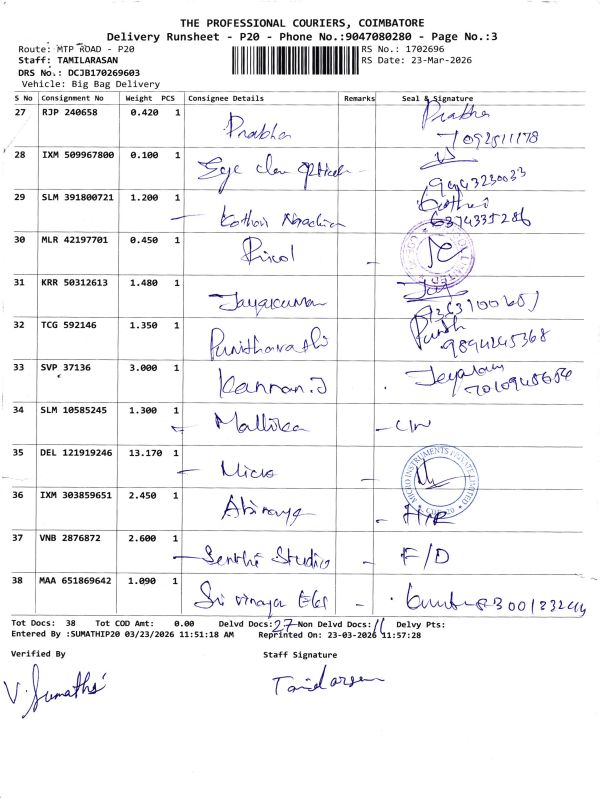 THE PROFESSIONAL COURIERS, COIMBATORE
Delivery Runsheet - P20 - Phone No.:9047080280 - Page No.:3
Route: MTP ROAD - P20 RS No.: 1702696
Staff: TAMILARASAN RS Date: 23-Mar-2026
DRS No.: DCJB170269603
Vehicle: Big Bag Delivery
S No Consignment No Weight PCS Consignee Details Remarks Seal & Signature
27 RJP 240658 0.420 1 Prabha Prabha
28 IXM 509967800 0.100 1 Eye
9443230033
29 SLM 391800721 1.200 1 Kothari Kothari
6374335286
30 MLR 42197701 0.450 1
31 KRR 50312613 1.480 1 Jayakumar
32 TCG 592146 1.350 1 Punithavathi
9894245368
33 SVP 37136 3.000 1 Kannan.J
34 SLM 10585245 1.300 1 Mallika
35 DEL 121919246 13.170 1 Micro MICRO INSTRUMENTS PRIVATE LIMITED
36 IXM 303859651 2.450 1
37 VNB 2876872 2.600 1 Studio F/D
38 MAA 651869642 1.090 1 Sri
Tot Docs: 38 Tot COD Amt: 0.00 Delvd Docs:27 Non Delvd Docs:11 Delvy Pts:
Entered By :SUMATHIP20 03/23/2026 11:51:18 AM Reprinted On: 23-03-2026 11:57:28
Verified By Staff Signature
V. Sumathi